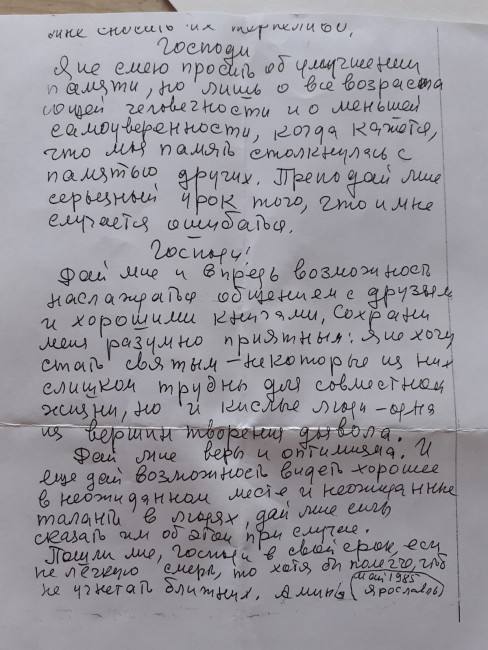 мне сносить их терпеливо.
Господи
Я не смею просить об улучшении
памяти, но лишь о все возраста
ющей человечности и о меньшей
самоуверенности, когда кажется,
что моя память столкнулась с
памятью других. Преподай мне
серьезный урок того, что и мне
случается ошибаться.
Господи!
Дай мне и впредь возможность
наслаждаться общением с друзьям
и хорошими книгами, Сохрани
меня разумно приятным. Я не хочу
стать святым – некоторые из них
слишком трудны для совместной
жизни, но и кислые люди – одна
из вершин творения дьявола.
Дай мне веры и оптимизма. И
еще дай возможность видеть хорошее
в неожиданном месте и неожиданные
таланты в людях, дай мне силы
сказать им об этом при случае.
Пошли мне, Господи в свой срок, если
не лёгкую смерть, то хотя бы полегче, чтоб
не угнетать ближних. Аминь
май 1985
Ярославль